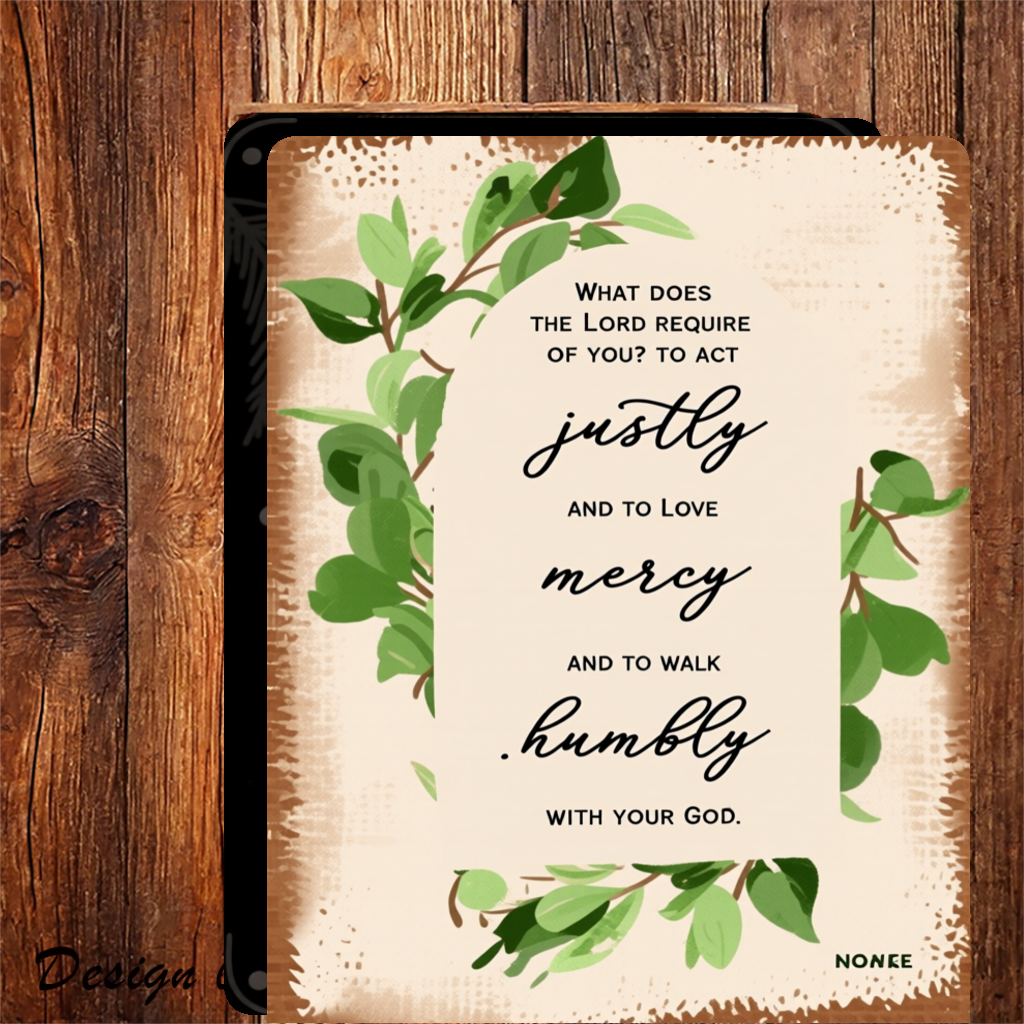 What does
the Lord require
of you? to act
justly
and to Love
mercy
and to walk
.humbly
with your God.
Design